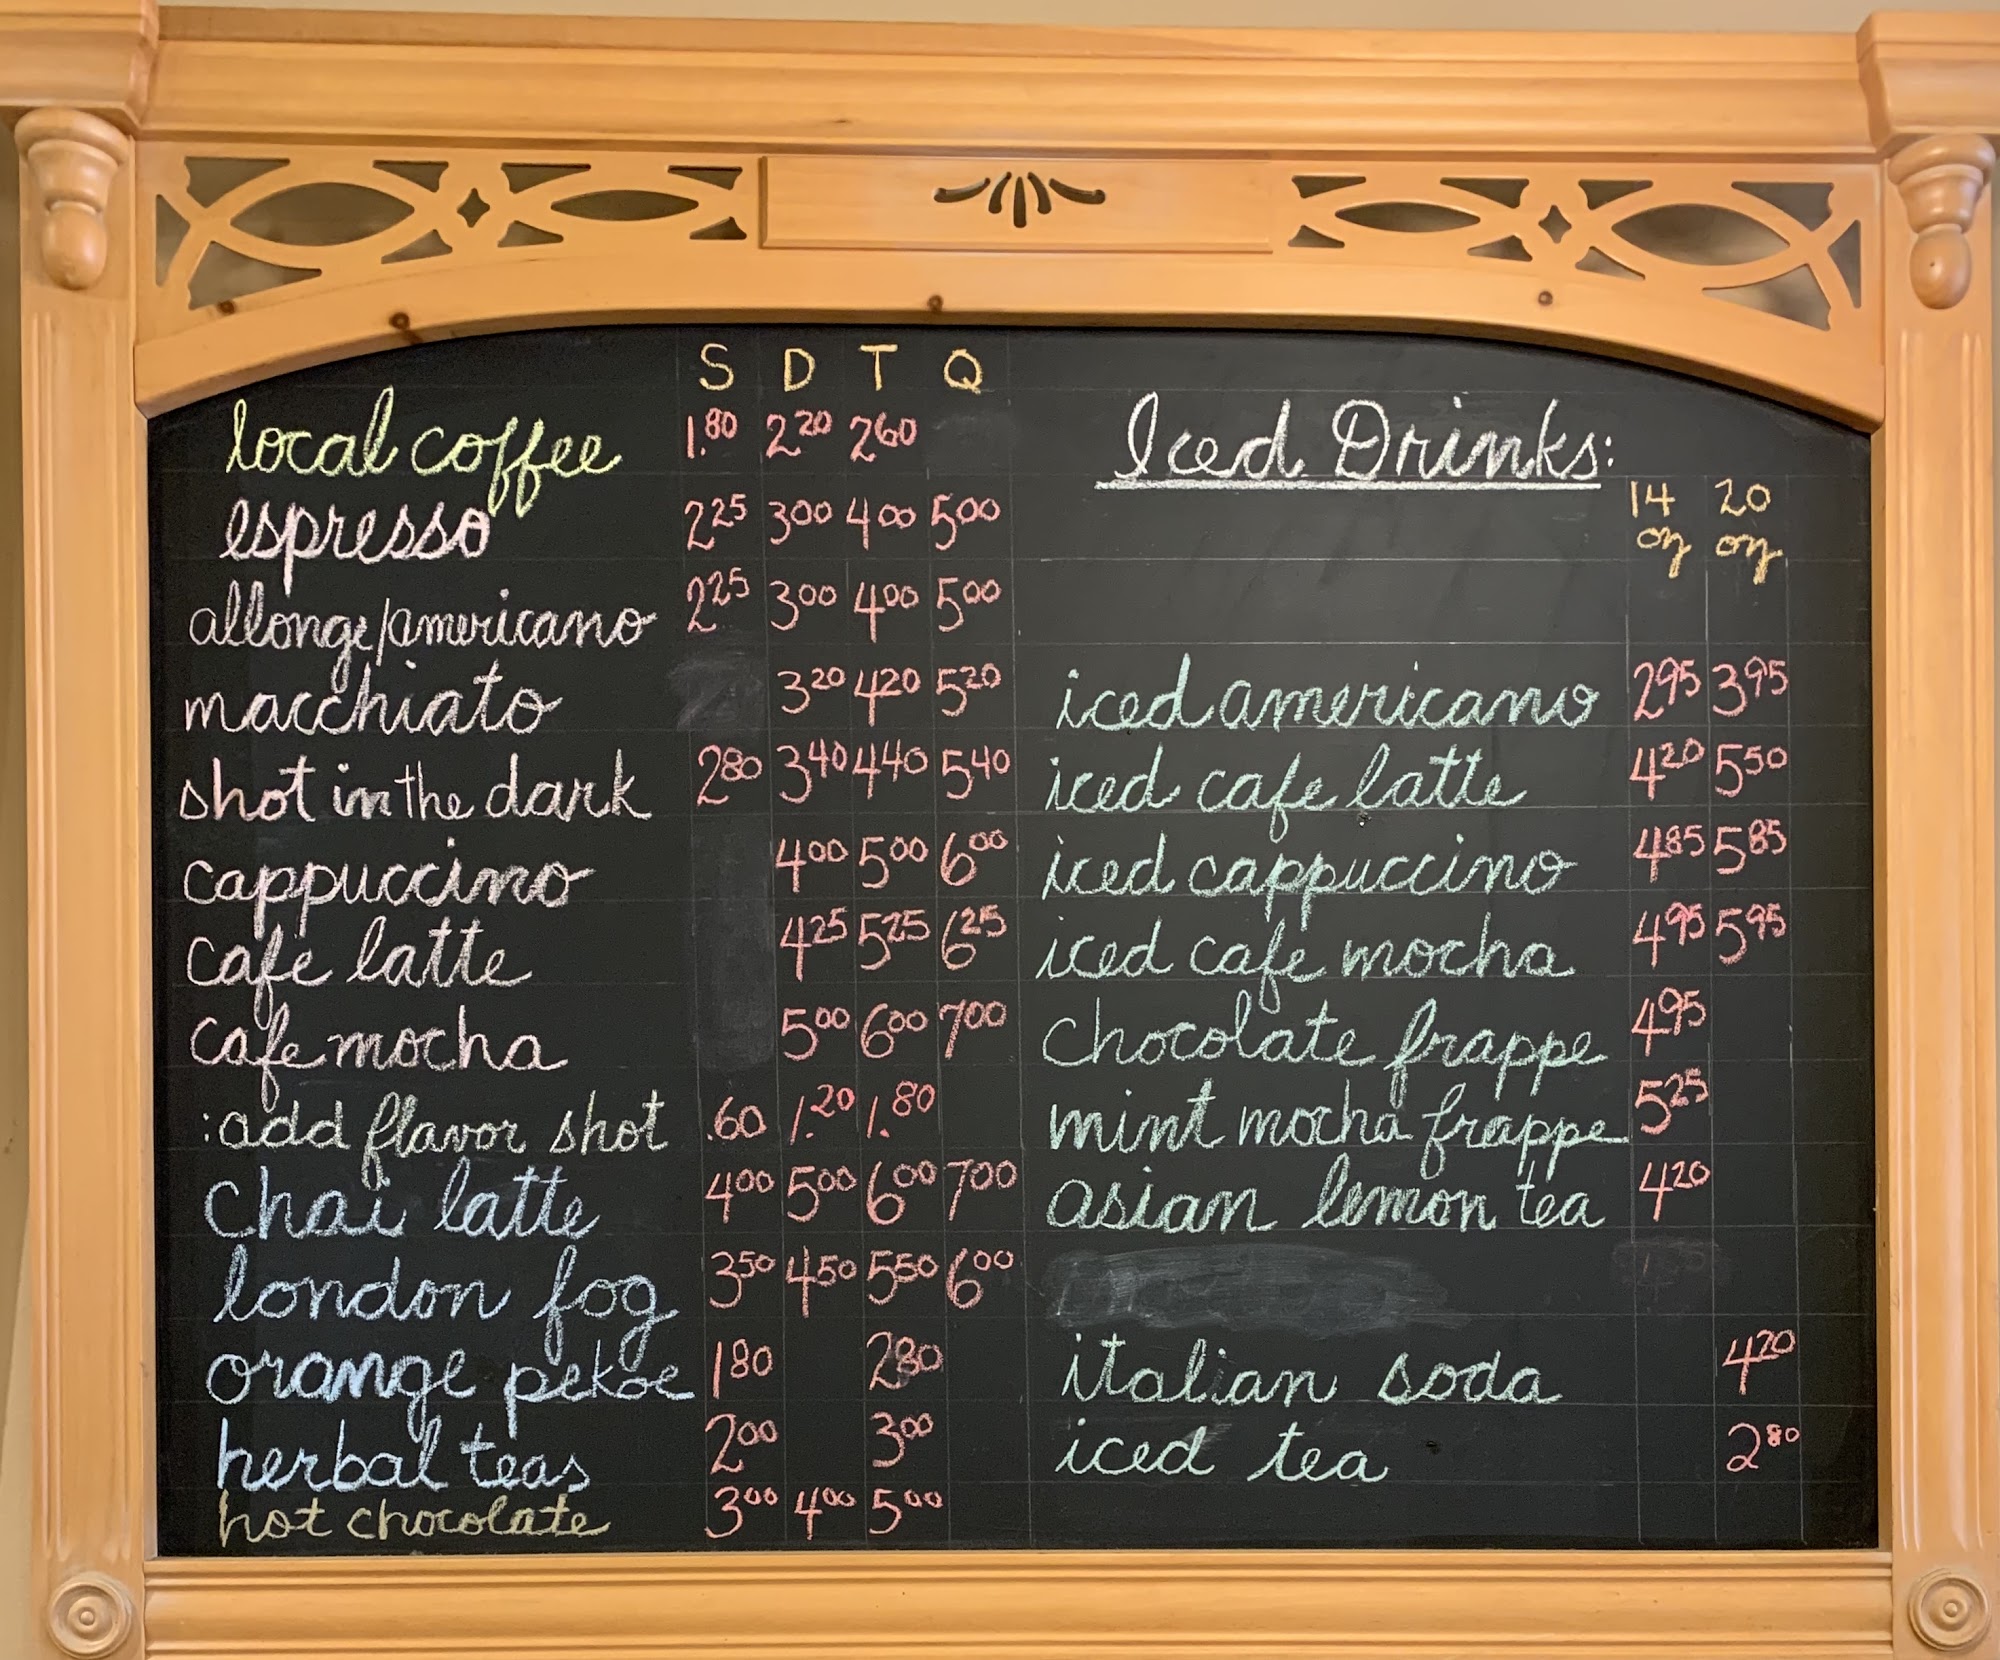 S D T Q
local coffee 1.80 2 20 2 60
espresso 2 25 3 00 4 00 5 00
allonge/americano 2 25 3 00 4 00 5 00
macchiato 3 20 4 20 5 20
shot in the dark 2 80 3 40 4 40 5 40
cappuccino 4 00 5 00 6 00
cafe latte 4 25 5 25 6 25
cafe mocha 5 00 6 00 7 00
:add flavor shot .60 1.20 1.80
chai latte 4 00 5 00 6 00 7 00
london fog 3 50 4 50 5 50 6 00
orange pekoe 1 80 2 80
herbal teas 2 00 3 00
hot chocolate 3 00 4 00 5 00
Iced Drinks:
14 20
oz oz
iced americano 2 95 3 95
iced cafe latte 4 20 5 50
iced cappuccino 4 85 5 85
iced cafe mocha 4 95 5 95
chocolate frappe 4 95
mint mocha frappe 5 25
asian lemon tea 4 20
italian soda 4 20
iced tea 2 80